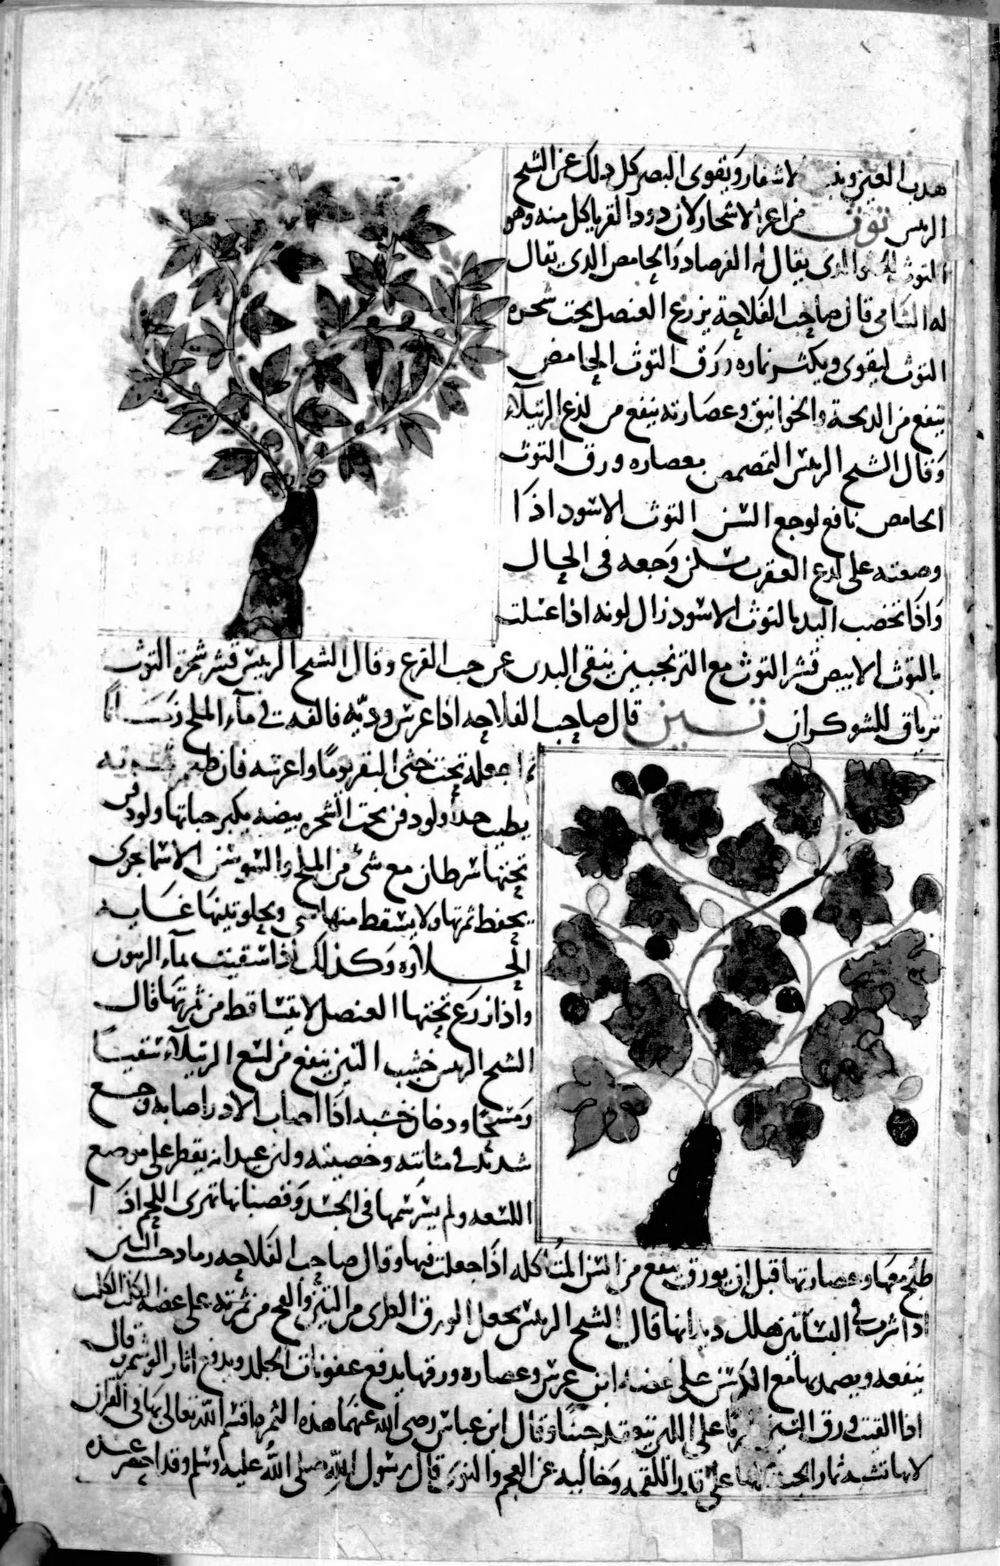 هدب العين وينبت الاشفار ويقوى البصر كل ذلك عن الشيخ
الرئيس توث من اعز الاشجار لان دود القز ياكل منه وهو
التوث الحلو الذى يقال له الفرصاد والحامض الذى يقال
له الشامى قال صاحب الفلاحة يزرع العنصل تحت شجرة
التوث ليقوى ويكثر ثماره ورق التوث الحامض
ينفع من الذبحة والخوانيق وعصارته ينفع من لذع الرتيلاء
وقال الشيخ الرئيس التمضمض بعصاره ورق التوث
الحامض نافع لوجع السن التوث الاسود اذا
وضعته على لدغ العقرب سكن وجعه فى الحال
واذا تخضب اليد بالتوث الاسود زال لونه اذا غسلت
بالتوث الابيض قشر التوث مع الترنجبين ينقى البدن عن حب القرع وقال الشيخ الرئيس قشر شجرة التوث
ترياق للشوكران تين قال صاحب الفلاحه اذا غرس وديه فالقه فى ماء الملح زمانا
ثم اجعله تحت خثى البقر يوما واغرسه فان طعم ثمرته
يطيب جدا ولو دفن تحت الشجره بيضه يكبر حباتها ولو دفن
تحتها سرطان مع شئ من الملح والسوسن الاسمانجونى
يحفظ ثمرتها ولا يسقط منها شى ويحلو تينها غايه
الحلاوه وكذلك اذا سقيت بماء الزيتون
واذا زرع تحتها العنصل لا يتساقط من ثمرتها قال
الشيخ الرئيس خشب التين ينفع من لسع الرتيلاء سقيا
ومسحا ودخان خشبه اذا اصاب الادر اصابه وجع
شديد فى مثانته وخصيته ولبن عيدانه يقطر على موضع
اللسعه ولم يسر سمها فى الجسد وقضبانها تهرى اللحم اذا
طبخ معها وعصارتها قبل ان يورق ينفع من السن المتاكله اذا جعلت فيها وقال صاحب الفلاحه رماد خشب التين
اذا نثرت فى البساتين هلك ديدانها قال الشيخ الرئيس يجعل الورق الطرى من التين والفج من ثمرته على عضه الكلب الكلب
ينفعه ويضمد بها مع الكرسنه على عضه ابن عرس وعصاره ورقها يدفع عفونات الجلد ويدفع اثار الوشم وقال
اذا القيت ورق التين على اللبن ينعقد جبنا وقال ابن عباس رضى الله عنهما هذه الثمره اقسم الله تعالى بها فى القران
لانها تشبه ثمار الجنة لانها على قدر اللقمه وخاليه عن العجم والنوى قال رسول الله صلى الله عليه وسلم وقد احضر عنده